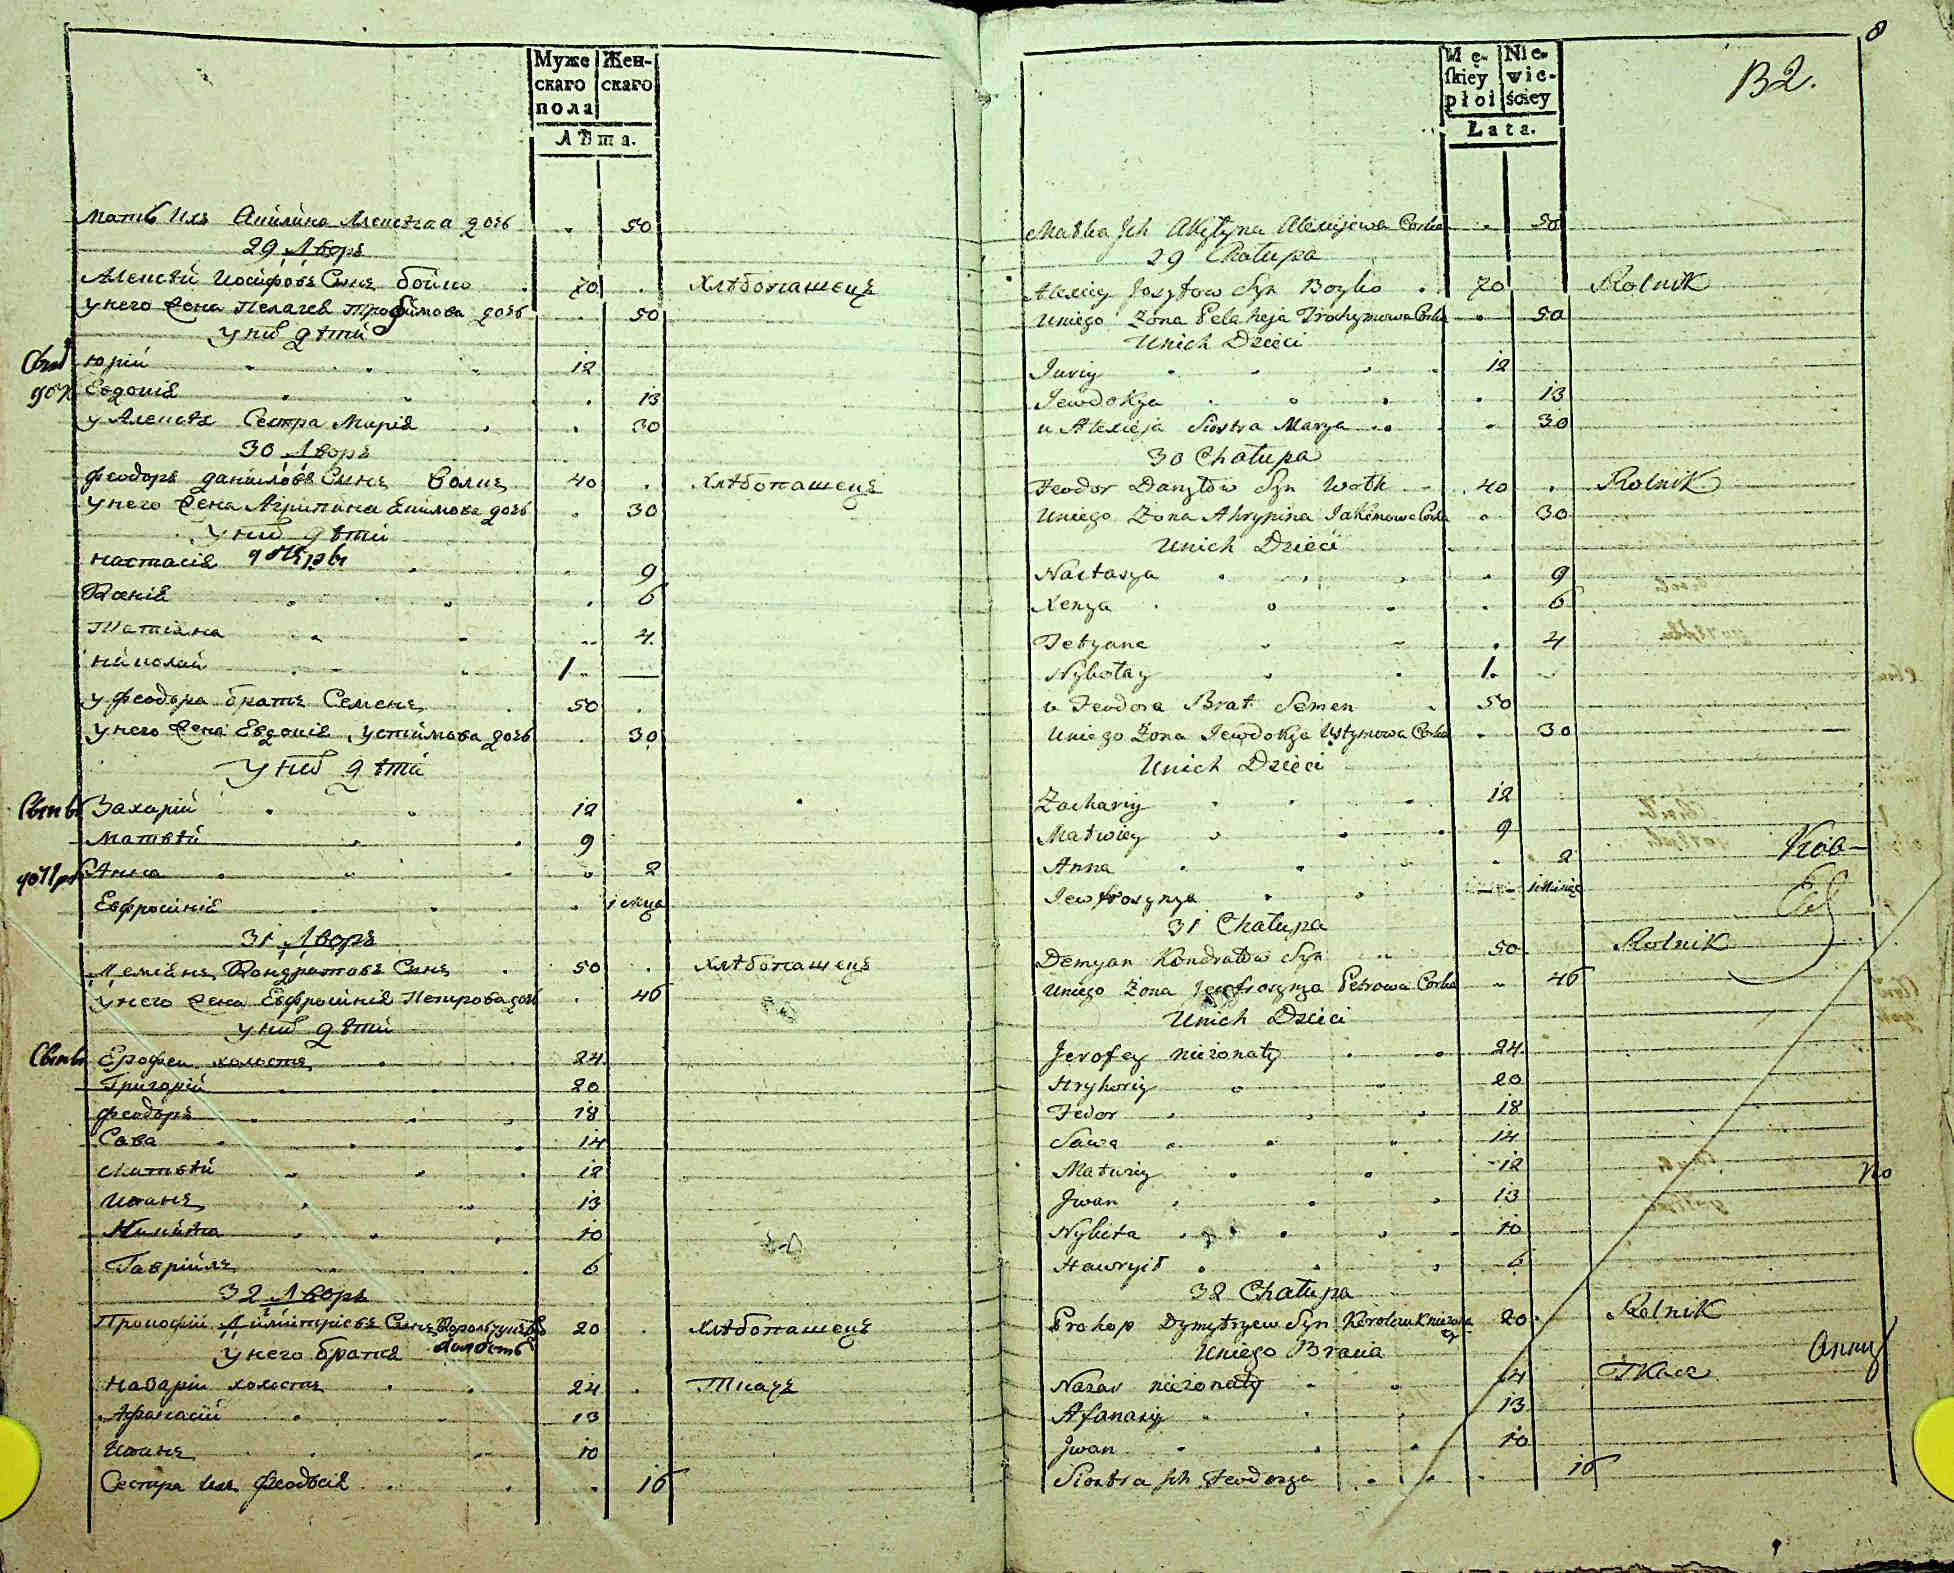 Муже скаго пола
Жен-скаго
Лѣта.
Мать ихъ Акилина Алексѣева дочь 50
29 Дворъ
Алексѣй Иосифовъ Сынъ Бойко 70 Хлѣбопашецъ
У него жена Пелагея Трофимова дочь 50
У них дѣти
Юрій 12
Евдокія 13
У Алексѣя Сестра Марія 30
30 Дворъ
Феодоръ Даниловъ Сынъ Волкъ 40 Хлѣбопашецъ
У него жена Агрипина Екимова дочь 30
У них дѣти
Настасія 9
Ксенія 6
Татіана 4
Николай 1
У Феодора братъ Семенъ 50
У него жена Евдокія Устимова дочь 30
У них дѣти
Захарій 12
Матвѣй 9
Анна 2
Евфросинія
31 Дворъ
Деміянъ Кондратовъ Сынъ 50 Хлѣбопашецъ
У него жена Евфросинія Петрова дочь 46
У них дѣти
Ерофей холостъ 24
Григорій 20
Феодоръ 18
Сава 14
Матвѣй 12
Иванъ 13
Никита 10
Гавріилъ 6
32 Дворъ
Прокофій Димитріевъ Сынъ 20 Хлѣбопашецъ
У него братья
Назарій холостъ 24 Ткачъ
Афанасій 13
Иванъ 10
Сестра ихъ Феодосія 16
8
Mę-skiey płci
Nie-wie-ściey
Łata.
B2.
Matka Jch Akylyna Alexiejewa Corka 50
29 Chałupa
Alexiey Josyfow Syn Boyko 70 Rolnik
Uniego Zona Pelaheja Trochymowa Corka 50
Unich Dzieci
Juriy 12
Jewdokya 13
u Alexieja Siostra Marya 30
30 Chałupa
Feodor Danyłow Syn Wołk 40 Rolnik
Uniego Zona Ahrypina Jakimowa Corka 30
Unich Dzieci
Nastasya 9
Xenya 6
Tetyana 4
Nykołay 1
u Feodora Brat Semen 50
Uniego Zona Jewdokya Ustymowa Corka 30
Unich Dzieci
Zachariy 12
Matwiey 9
Anna 2
Jewfrosynya
31 Chałupa
Demyan Kondratow Syn 50 Rolnik
Uniego Zona Jewfrosynya Petrowa Corka 46
Unich Dzieci
Jerofey nieżonaty 24
Hryhoriy 20
Fedor 18
Sawa 14
Matwiy 12
Jwan 13
Nykita 10
Hawryił 6
32 Chałupa
Prokop Dymytryew Syn 20 Rolnik
Uniego Bracia
Nazar nieżonaty Tkacz
Afanasiy 13
Jwan 10
Siostra Jch Feodosya 16